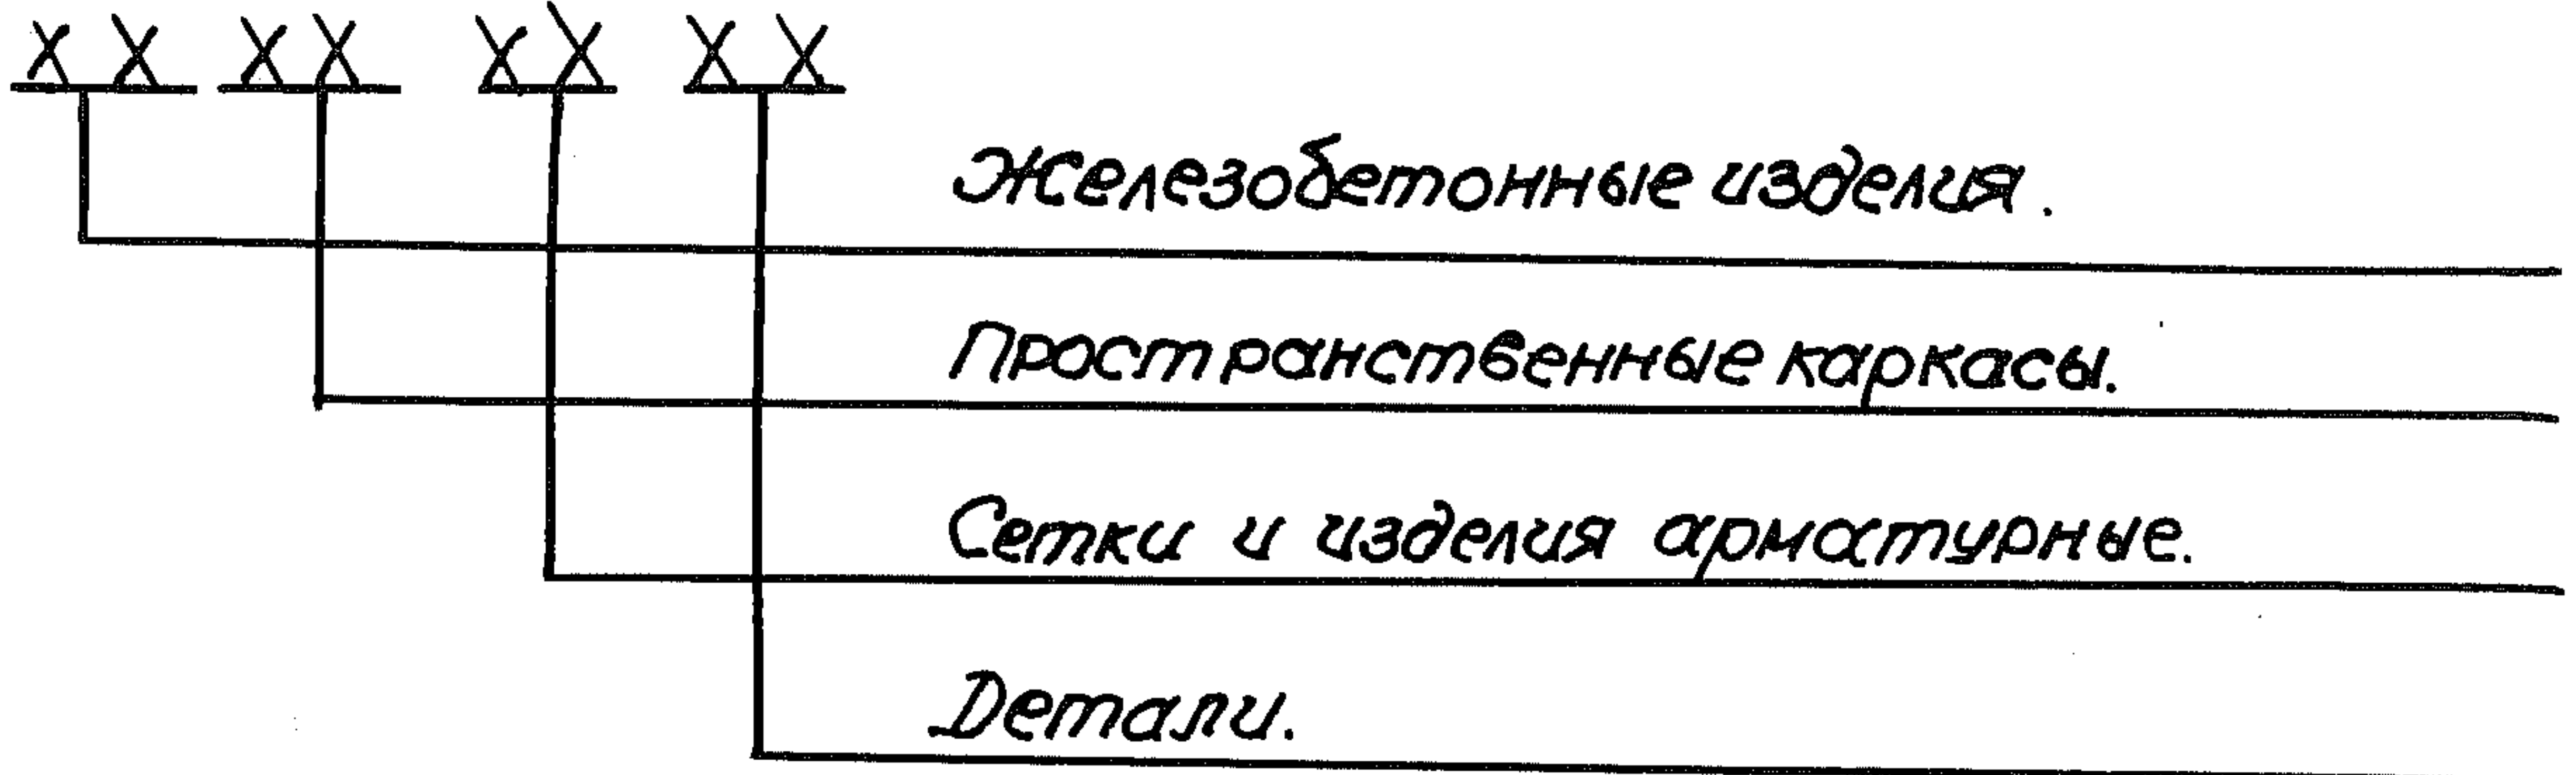 ХХ ХХ ХХ ХХ
Железобетонные изделия.
Пространственные каркасы.
Сетки и изделия арматурные.
Детали.